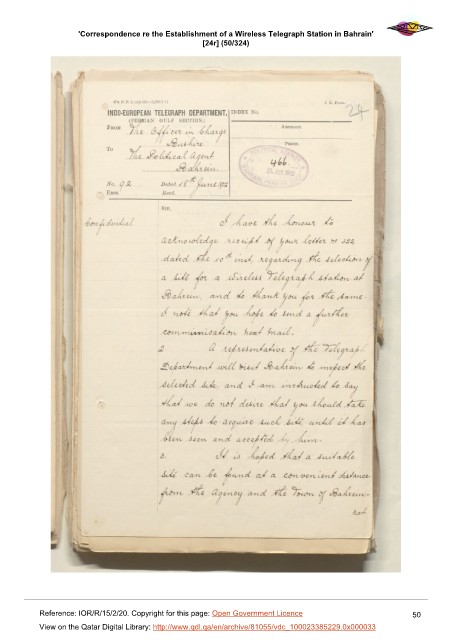 'Correspondence re the Establishment of a Wireless Telegraph Station in Bahrain'
[24r] (50/324)
24
INDO-EUROPEAN TELEGRAPH DEPARTMENT,
(PERSIAN GULF SECTION.)
INDEX No.
FROM The Officer in Charge
Bushire
TO The Political Agent
Bahrein
Answers
Paras.
466
No. 92 Dated 18th June
Encs. Recd.
Confidential
SIR,
I have the honour to
acknowledge receipt of your letter No 552
dated the 10th inst. regarding the selection of
a site for a Wireless Telegraph station at
Bahrein, and to thank you for the same.
I note that you hope to send a further
communication next mail.
2 A representative of the Telegraph
Department will visit Bahrein to inspect the
selected site and I am instructed to say
that we do not desire that you should take
any steps to acquire such site until it has
been seen and accepted by him.
3. It is hoped that a suitable
site can be found at a convenient distance
from the Agency and the Town of Bahrein-
Reference: IOR/R/15/2/20. Copyright for this page: Open Government Licence
50
View on the Qatar Digital Library: http://www.qdl.qa/en/archive/81055/vdc_100023385229.0x000033